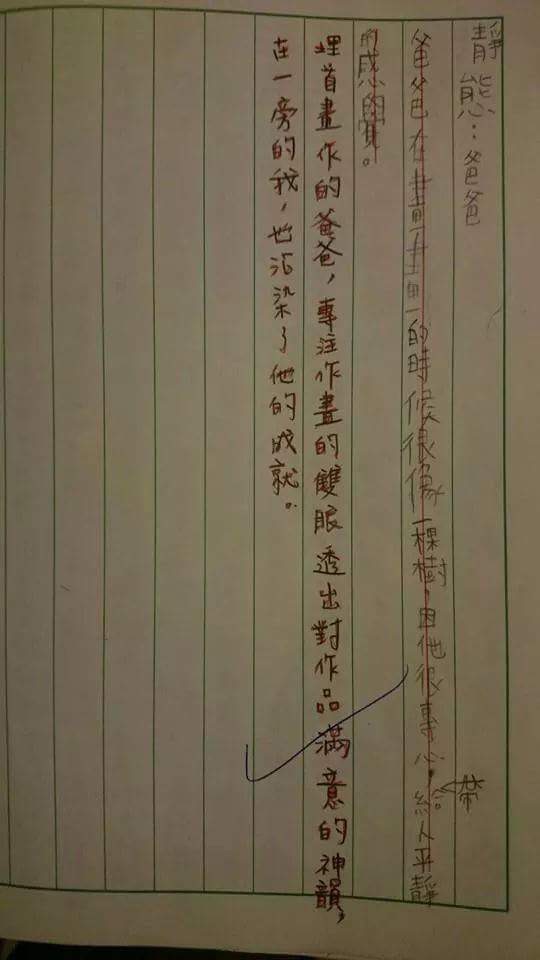 靜態：爸爸
爸爸在畫畫的時候很像一棵樹，因他很專心，帶給人平靜
的感覺。
埋首畫作的爸爸，專注作畫的雙眼透出對作品滿意的神韻，
在一旁的我，也沾染了他的成就。